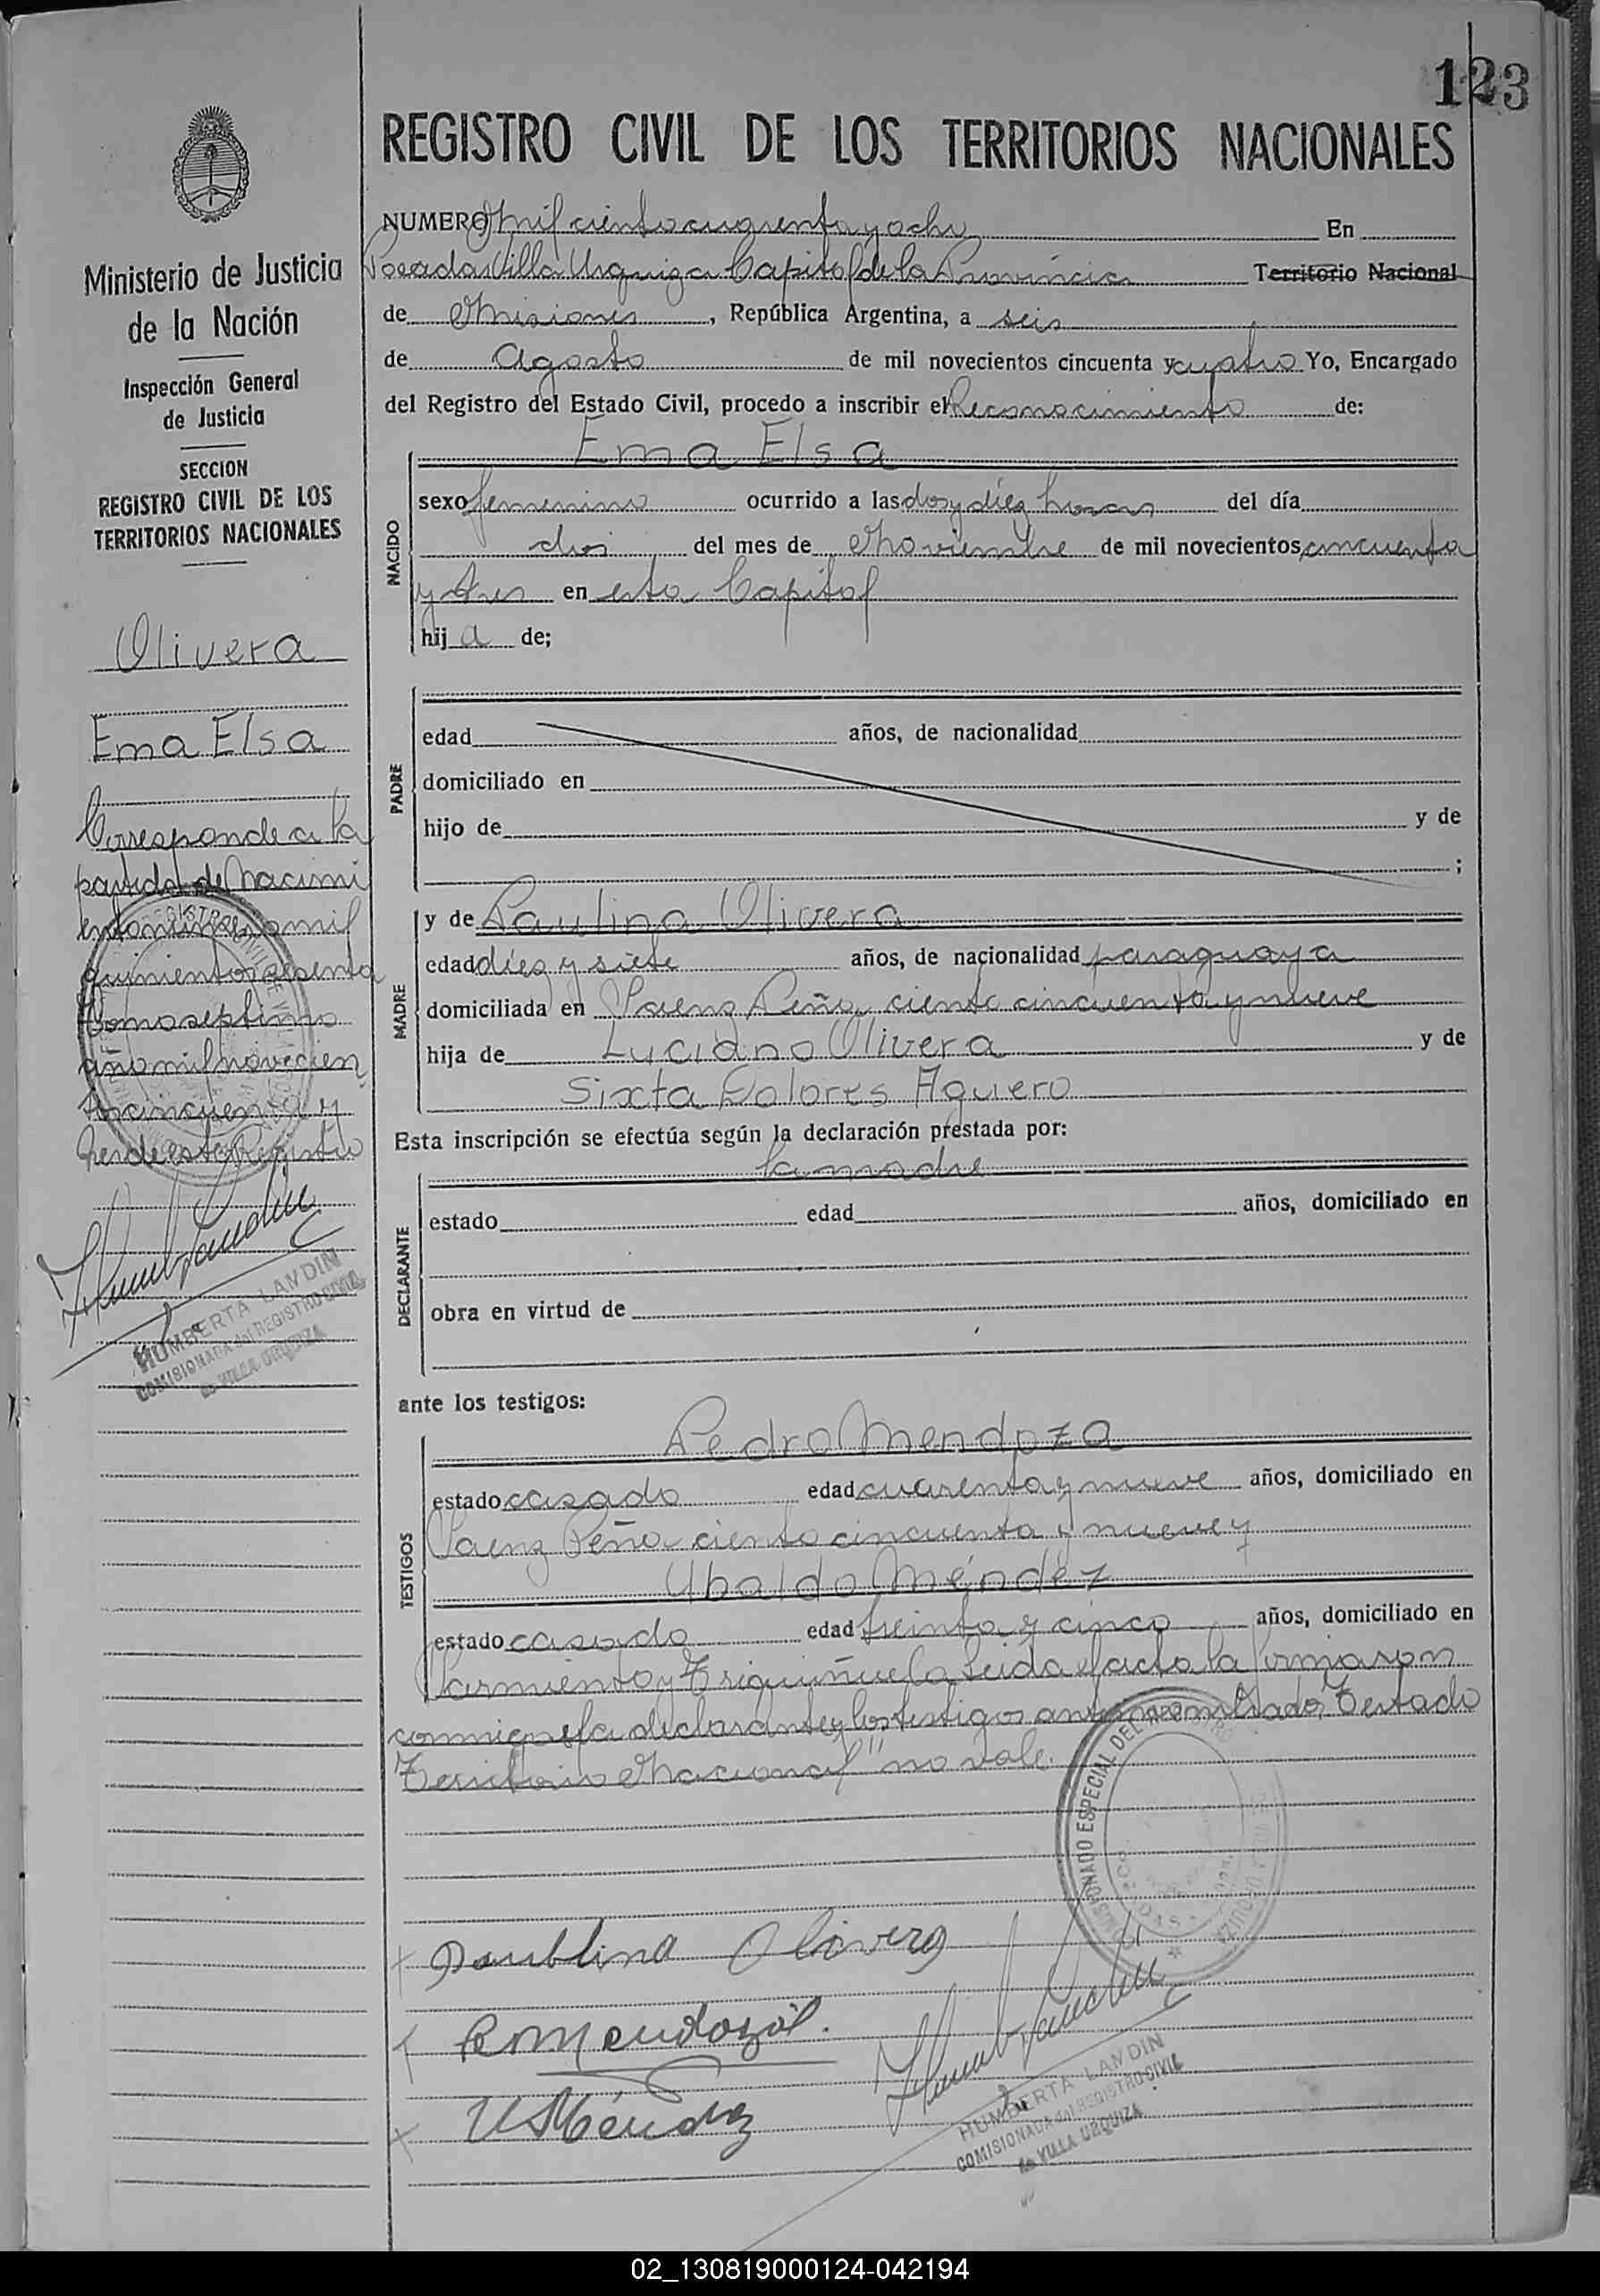 123
REGISTRO CIVIL DE LOS TERRITORIOS NACIONALES
NUMERO mil ciento cuarenta y ocho En
Posadas Villa Urquiza Capital de la Provincia Territorio Nacional
de Misiones, República Argentina, a seis
de Agosto de mil novecientos cincuenta y cuatro Yo, Encargado
del Registro del Estado Civil, procedo a inscribir el Reconocimiento de:
NACIDO
Ema Elsa
sexo femenino ocurrido a las dos y diez horas del día
dos del mes de Noviembre de mil novecientos cincuenta
y tres en esta Capital
hija de;
PADRE
edad años, de nacionalidad
domiciliado en
hijo de y de
;
MADRE
y de Paulina Olivera
edad diez y siete años, de nacionalidad paraguaya
domiciliada en Saenz Peña ciento cincuenta y nueve
hija de Luciano Olivera y de
Sixta Dolores Aguero
Esta inscripción se efectúa según la declaración prestada por:
DECLARANTE
la madre
estado edad años, domiciliado en
obra en virtud de
ante los testigos:
TESTIGOS
Pedro Mendoza
estado casado edad cuarenta y nueve años, domiciliado en
Saenz Peña ciento cincuenta y nueve y
Ubaldo Méndez
estado casado edad treinta y cinco años, domiciliado en
Sarmiento y Triquiñuela Leida el acta la firmaron
conmigo la declarante y los testigos antes nombrado, Testado
Territorio Nacional" no vale.
Paublina Olivera
P Mendoza
U Méndez
HUMBERTA LANDIN
COMISIONADA del REGISTRO CIVIL
de VILLA URQUIZA
Ministerio de Justicia
de la Nación
Inspección General
de Justicia
SECCION
REGISTRO CIVIL DE LOS
TERRITORIOS NACIONALES
Olivera
Ema Elsa
Corresponde a la
partida de Nacimi
ento número mil
quinientos sesenta
tomo septimo
año mil novecien
tos cincuenta y
tres de este Registro
HUMBERTA LANDIN
COMISIONADA del REGISTRO CIVIL
de VILLA URQUIZA
02_130819000124-042194